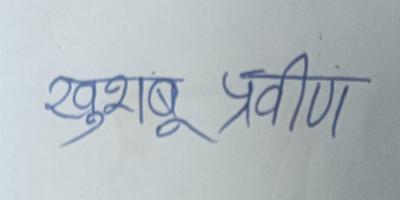 खुशबू प्रवीण